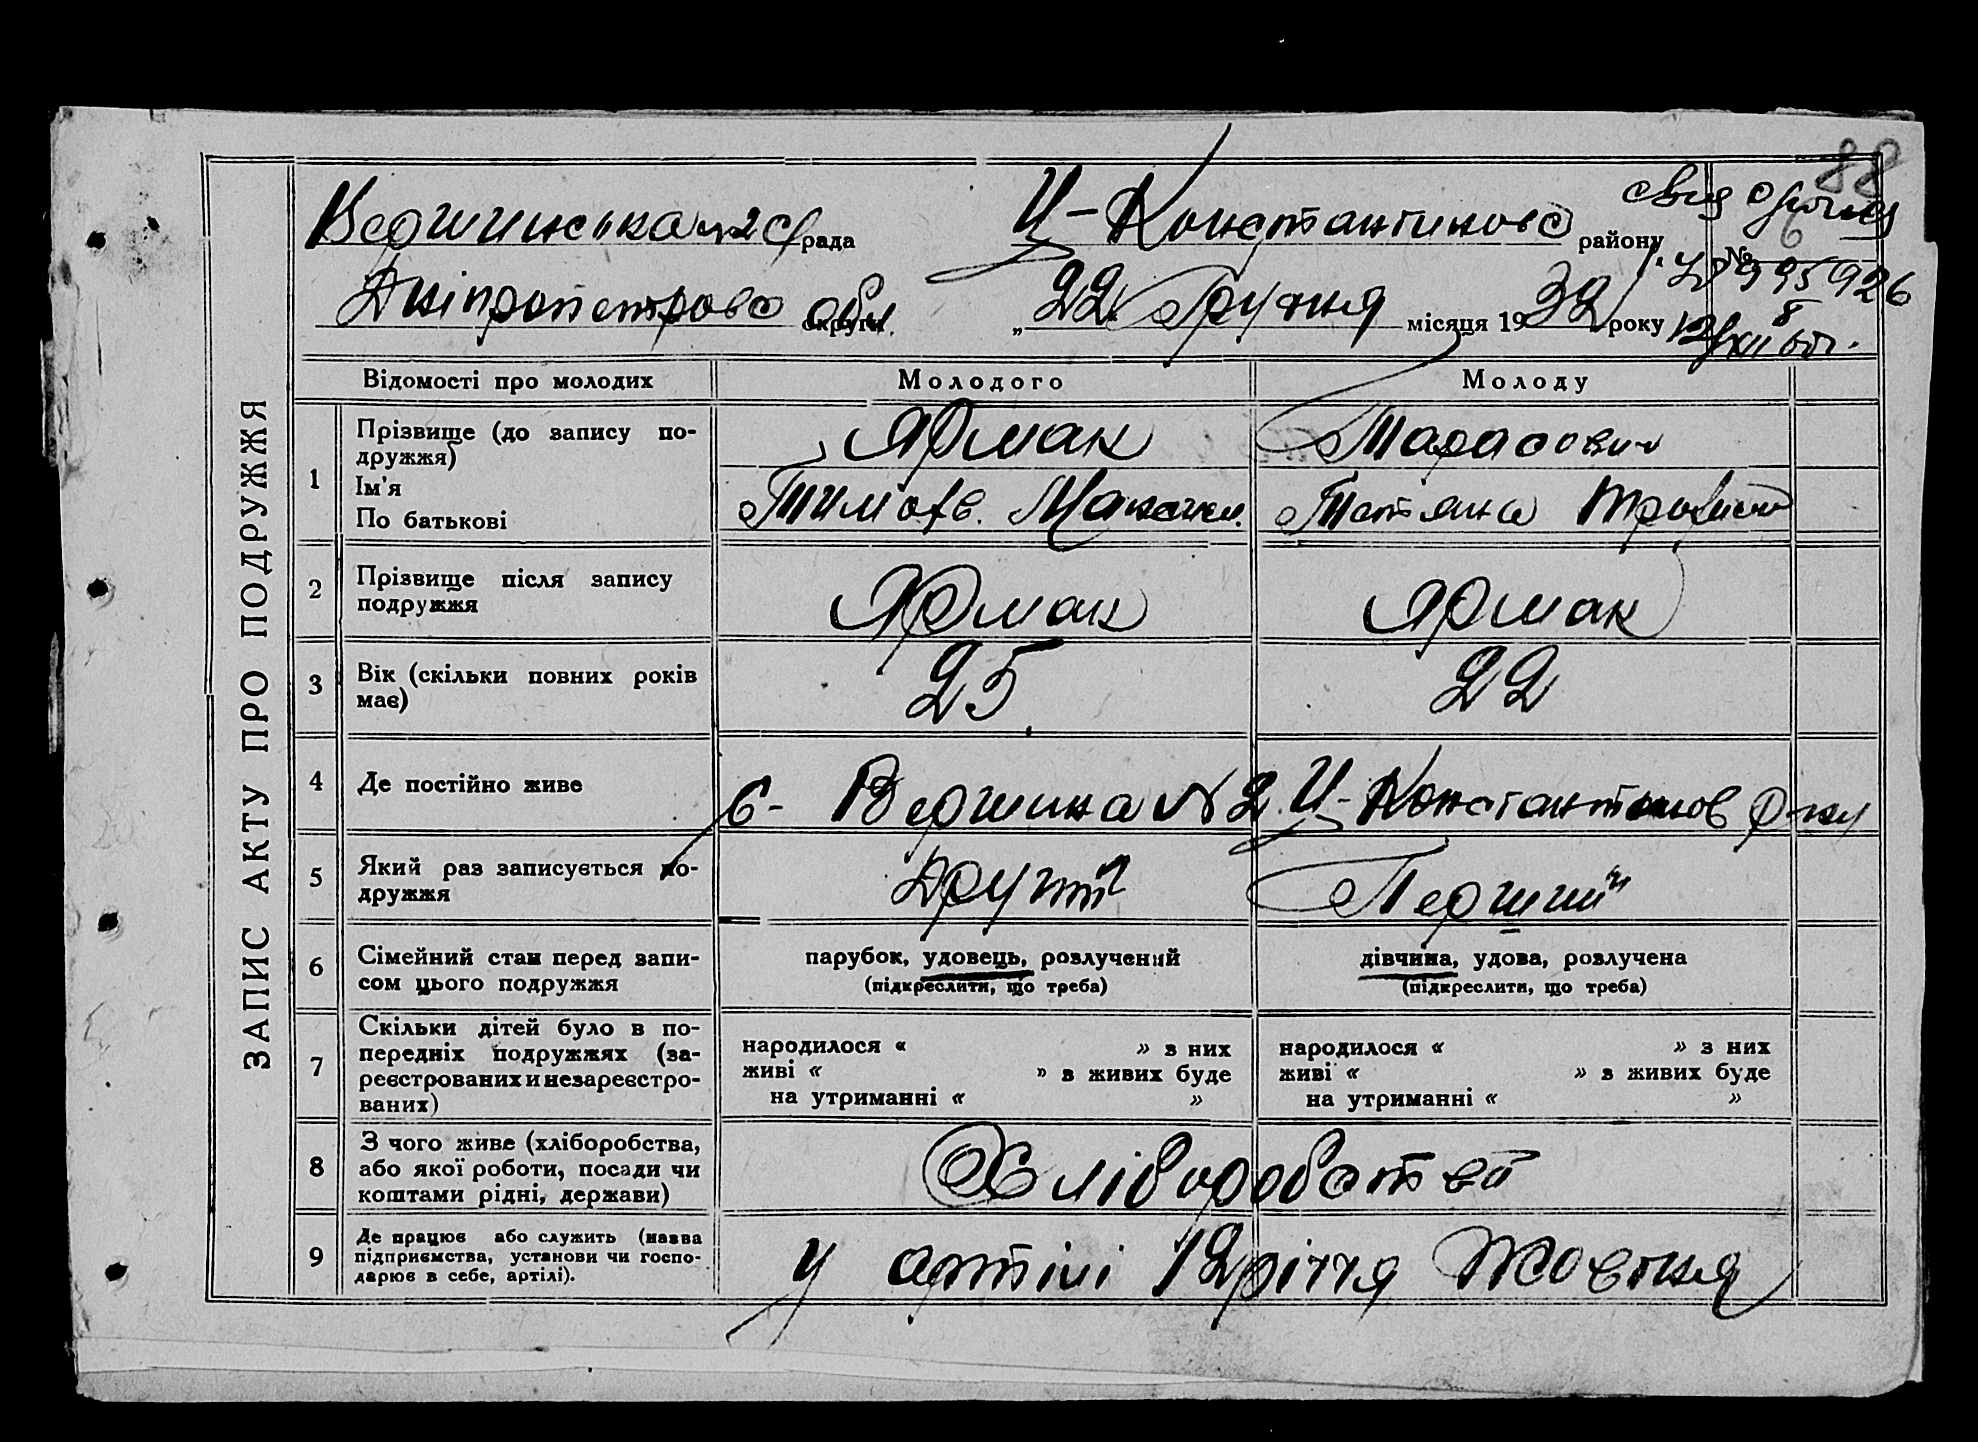 88
Вершинська №2 с/рада Ц-Константиново району № 6
995926
Дніпропетровс обл. округи „22" Грудня місяця 1932 року
12/XII 8
ЗАПИС АКТУ ПРО ПОДРУЖЖЯ
Відомості про молодих Молодого Молоду
1 Прізвище (до запису по-
дружжя) Ярмак Тарасович
Ім'я
По батькові Тимоф. Татяна
2 Прізвище після запису
подружжя Ярмак Ярмак
3 Вік (скільки повних років
має) 25 22
4 Де постійно живе с- Вершина № 2 Ц-Константинов р-ну
5 Який раз записується по-
дружжя Другий Перший
6 Сімейний стан перед запи-
сом цього подружжя
парубок, удовець, розлучений
(підкреслити, що треба)
дівчина, удова, розлучена
(підкреслити, що треба)
7 Скільки дітей було в по-
передніх подружжях (за-
реєстрованих и незареєстро-
ваних)
народилося « » з них
живі « » з живих буде
на утриманні « »
народилося « » з них
живі « » з живих буде
на утриманні « »
8 З чого живе (хліборобства,
або якої роботи, посади чи
коштами рідні, держави)
Хліборобство
9 Де працює або служить (назва
підприємства, установи чи госпо-
дарює в себе, артілі).
у артілі 12річчя Жовтня